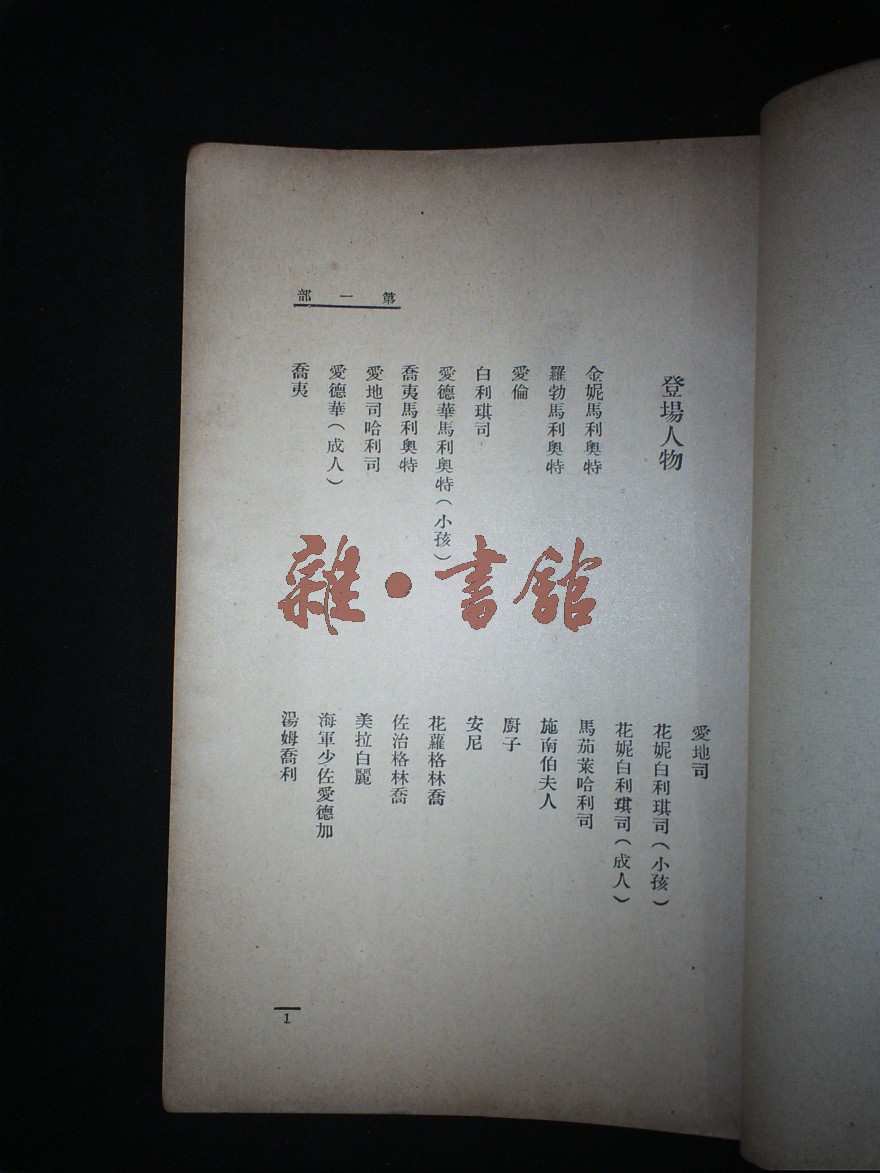 第一部
登場人物
金妮馬利奧特
羅勃馬利奧特
愛倫
白利琪司
愛德華馬利奧特（小孩）
喬夷馬利奧特
愛地司哈利司
愛德華（成人）
喬夷
愛地司
花妮白利琪司（小孩）
花妮白利琪司（成人）
馬茄萊哈利司
施南伯夫人
廚子
安尼
花蘿格林喬
佐治格林喬
美拉白麗
海軍少佐愛德加
湯姆喬利
1
雜·書館